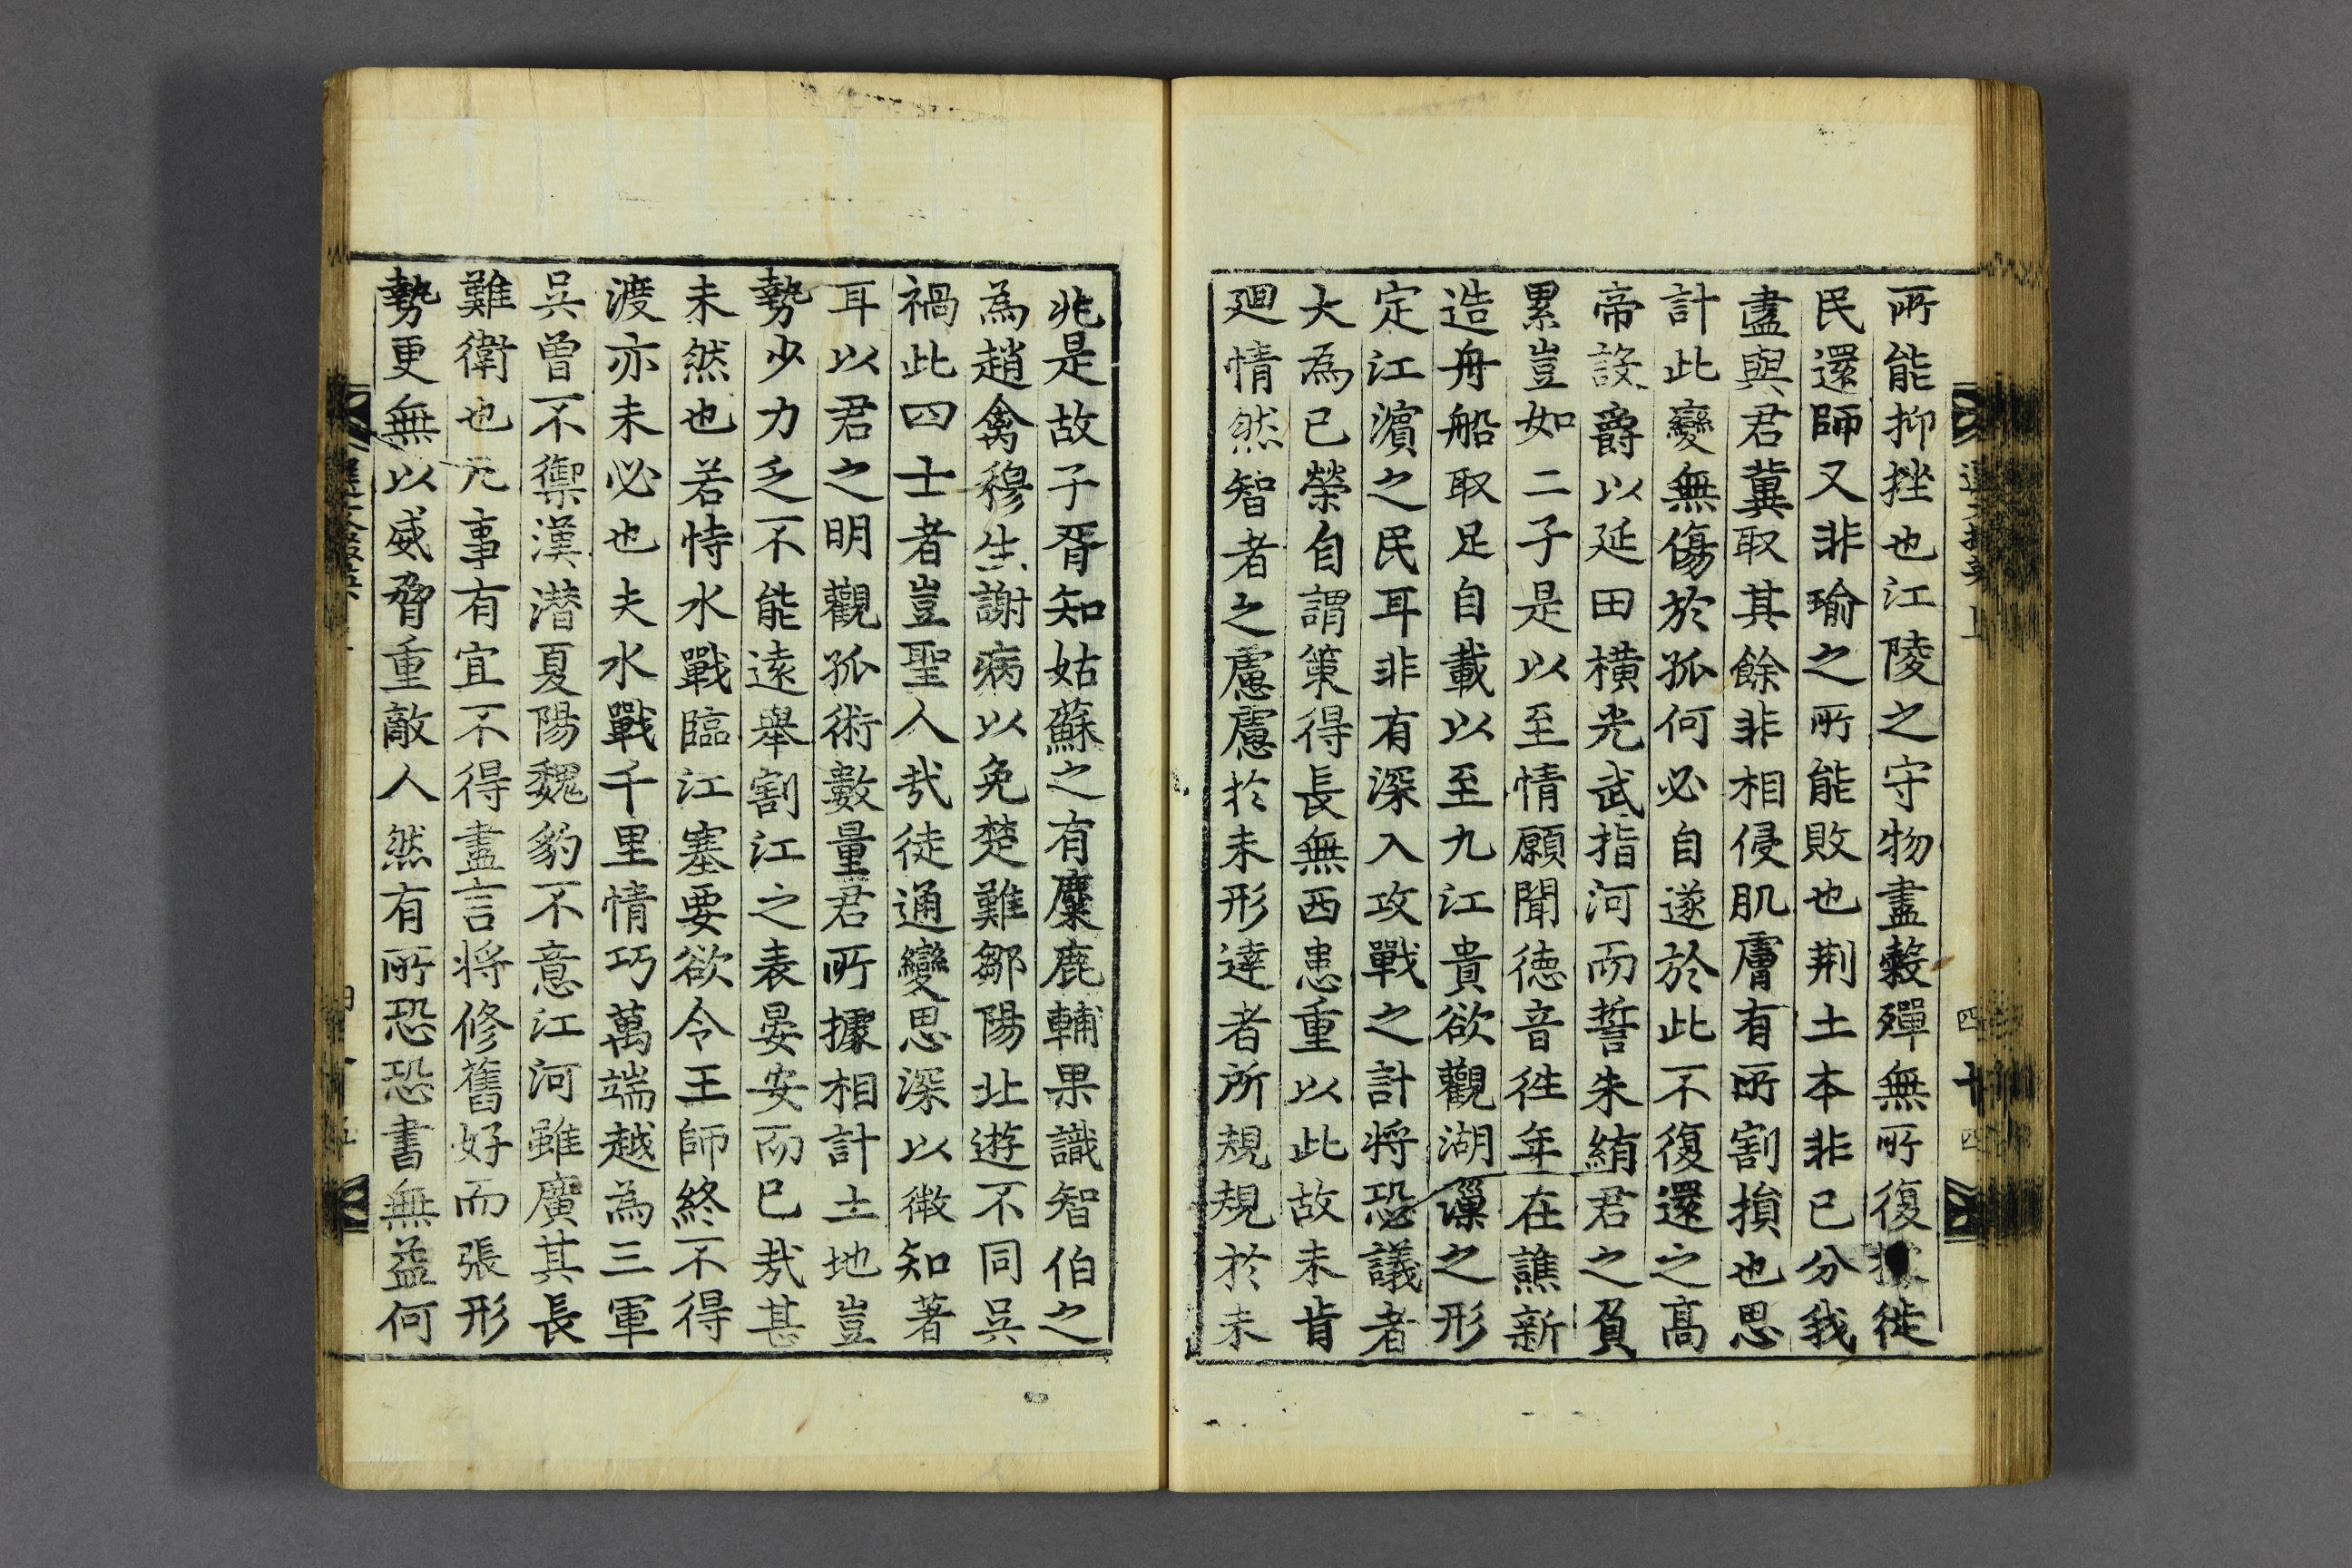 所能抑挫也江陵之守物盡穀殫無所復據徙
民還師又非瑜之所能敗也荆土本非已分我
盡與君冀取其餘非相侵肌膚有所割損也思
計此變無傷於孤何必自遂於此不復還之高
帝設爵以延田横光武指河而誓朱鮪君之負
累豈如二子是以至情願聞德音徃年在譙新
造舟船取足自載以至九江貴欲觀湖漅之形
定江濵之民耳非有深入攻戰之計将恐議者
大為已榮自謂策得長無西患重以此故未肯
廻情然智者之慮慮於未形達者所規規於未
兆是故子胥知姑蘇之有麋鹿輔果識智伯之
為趙禽穆生謝病以免楚難鄒陽北遊不同吳
禍此四士者豈聖人㦲徒通變思深以微知著
耳以君之明觀孤術數量君所據相計土地豈
勢少力乏不能逺舉割江之表晏安而已㦲甚
未然也若恃水戰臨江塞要欲令王師終不得
渡亦未必也夫水戰千里情巧萬端越為三軍
吳曾不禦漢潜夏陽魏豹不意江河雖廣其長
難衛也凡事有宜不得盡言将修舊好而張形
勢更無以威脅重敵人然有所恐恐書無益何
四十四